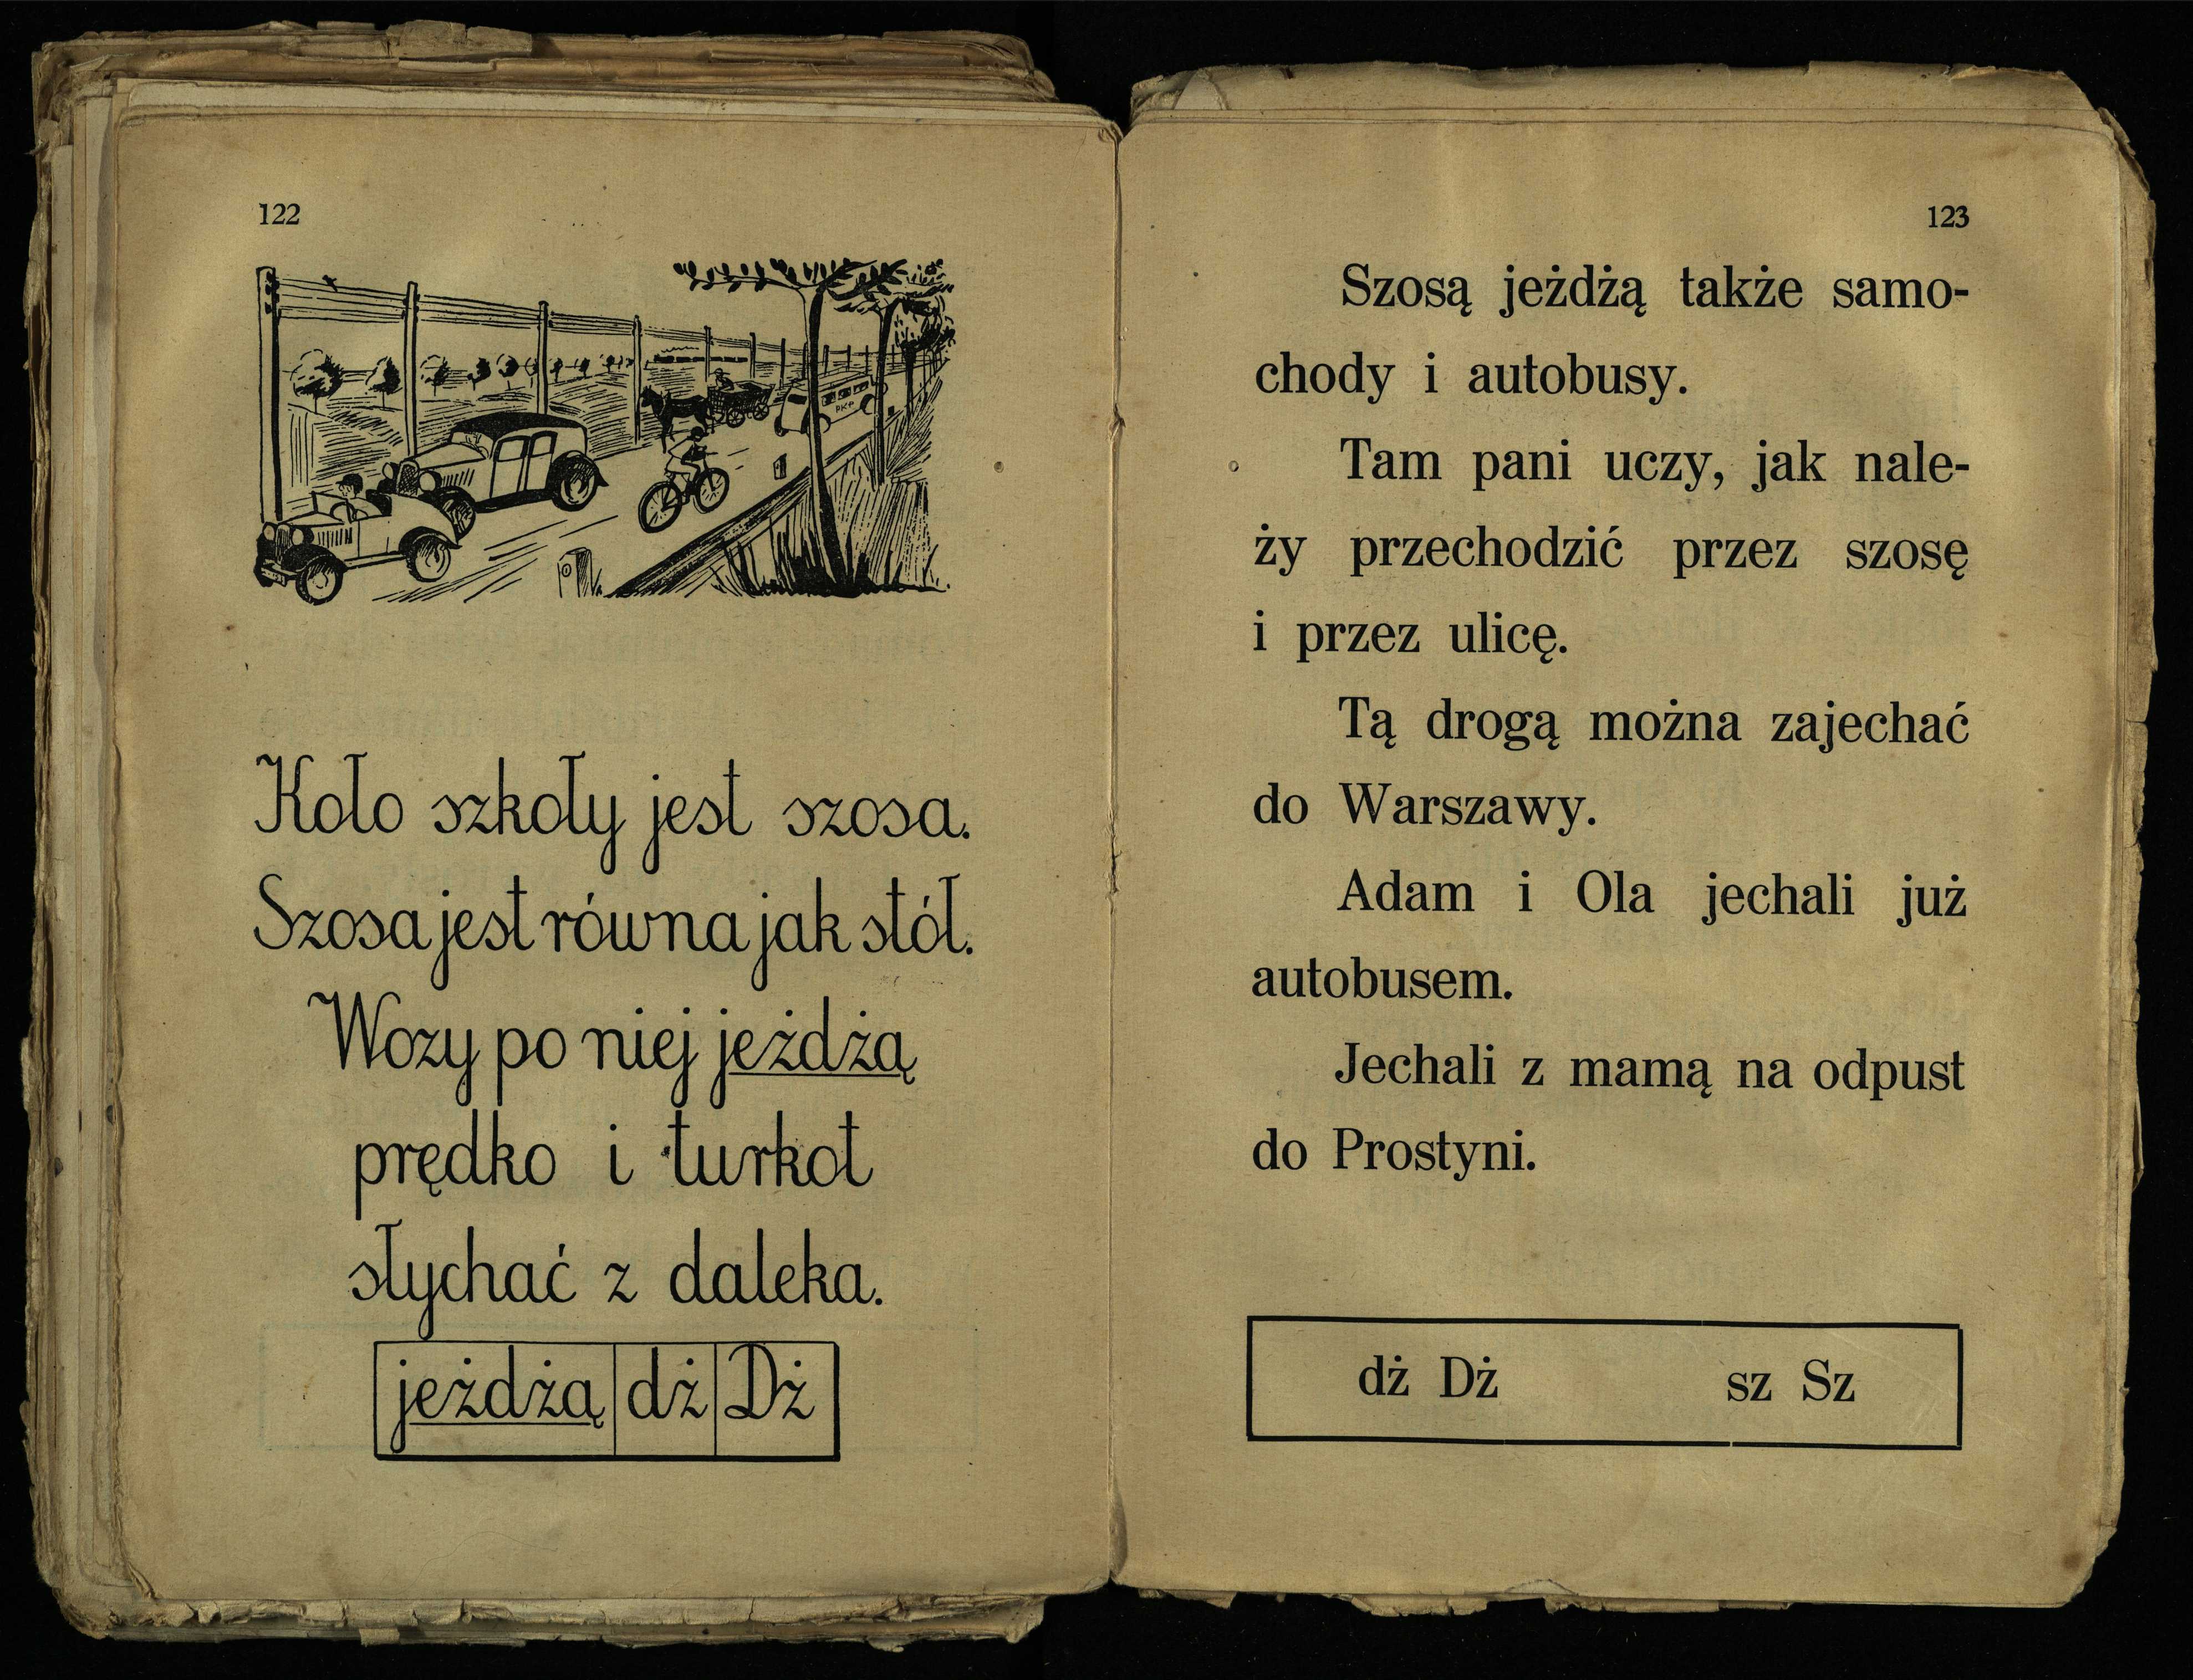 122
Koło szkoły jest szosa.
Szosa jest równa jak stół.
Wozy po niej jeżdżą
prędko i turkot
słychać z daleka.
jeżdżą dż Dż
123
Szosą jeżdżą także samo-
chody i autobusy.
Tam pani uczy, jak nale-
ży przechodzić przez szosę
i przez ulicę.
Tą drogą można zajechać
do Warszawy.
Adam i Ola jechali już
autobusem.
Jechali z mamą na odpust
do Prostyni.
dż Dż sz Sz